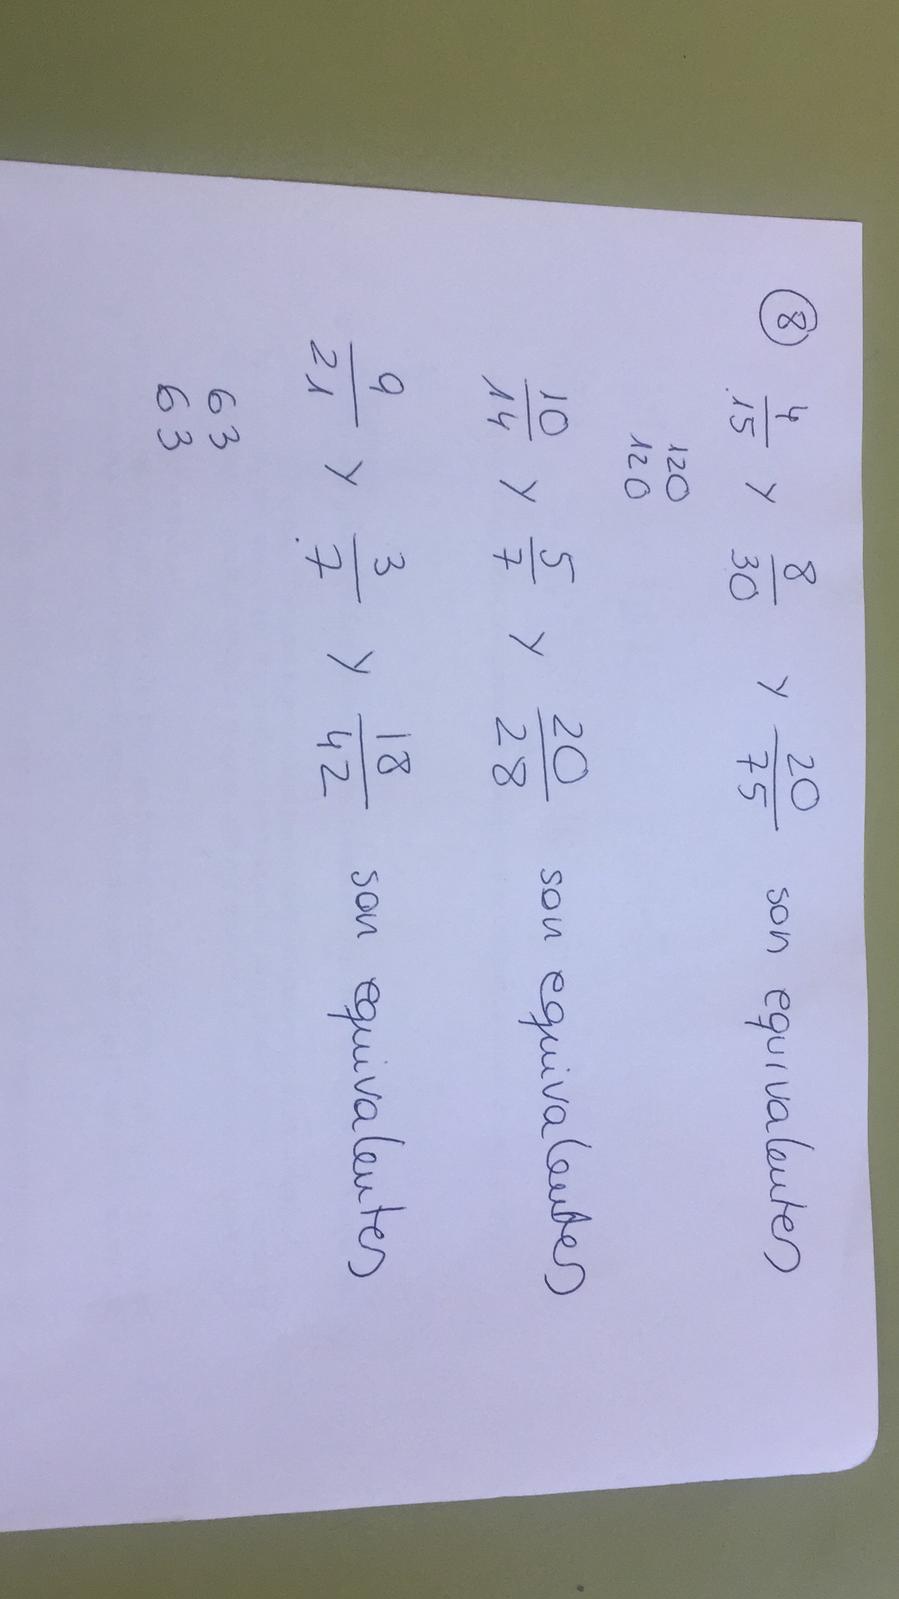 8 4/15 y 8/30 y 20/75 son equivalentes
120
120
10/14 y 5/7 y 20/28 son equivalentes
9/21 y 3/7 y 18/42 son equivalentes
63
63